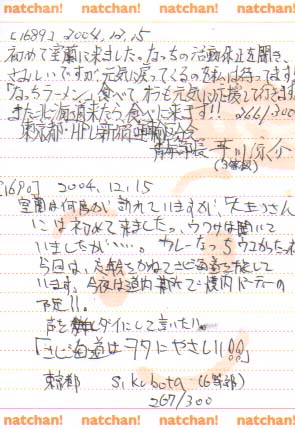 natchan! natchan! natchan! natchan! natchan!
[1689] 2004.12.15
初めて室蘭に来ました。なっちの活動休止を聞き、
さみしいですが、元気に戻ってくるのを私は待ってます!
「なっちラーメン」食べて 元気に応援して行きます
また北海道来たら、食べに来ます!! 266/300
東京都・HPU新宿
[1690] 2004.12.15
室蘭は何度か訪れていますが、「大王」さん
には初めて来ましたっ、ウワサは聞いて
いましたが……。カレーなっちウマかった
今回は、忘年会をかねて北海道を旅して
います。今夜は道内某所で焼肉パーティーの
予定!!。
声を大にして言いたい。
「北海道はヲタにやさしい!!」
東京都 S.Kubota (6等部)
267/300
natchan! natchan! natchan! natchan! natchan!